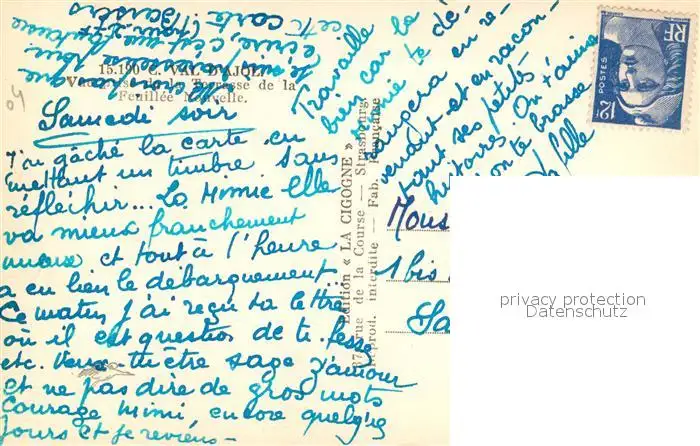 15.190 C. VAL D'AJOL
Vue de la Terrasse de la
Feuillée Nouvelle.
Samedi soir
J'ai gâché la carte en
mettant un timbre sans
réfléchir... La Mimie elle
va mieux franchement
mieux et tout à l'heure
a eu lieu le débarquement
Ce matin j'ai reçu ta lettre
où il est question de ti fesse
etc. Veux-tu être sage z'amour
et ne pas dire de gros mots
Courage mimi, encore quelq
jours et je reviens -
Travaille
bien car la
mie te dé-
rangera en re-
venant et en racon-
tant ses petits
histoires. On t'aime
on te brasse
fille
écrire, c'est
cette carte !
Edition « LA CIGOGNE »
37, rue de la Course — Strasbourg
Reprod. interdite — Fab. Française
Mous
1 bis
Sa
POSTES
RF
12F
04
privacy protection
Datenschutz